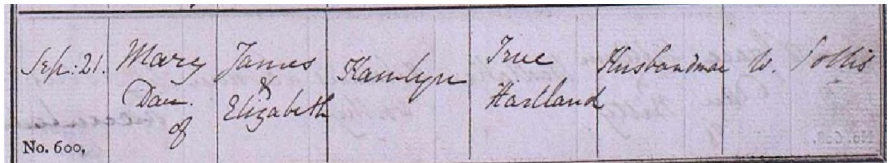 Sep: 21.
Mary
Dau.
of
James
&
Elizabeth
Hamlyn
True
Hartland
Husbandman
W.
No. 600,